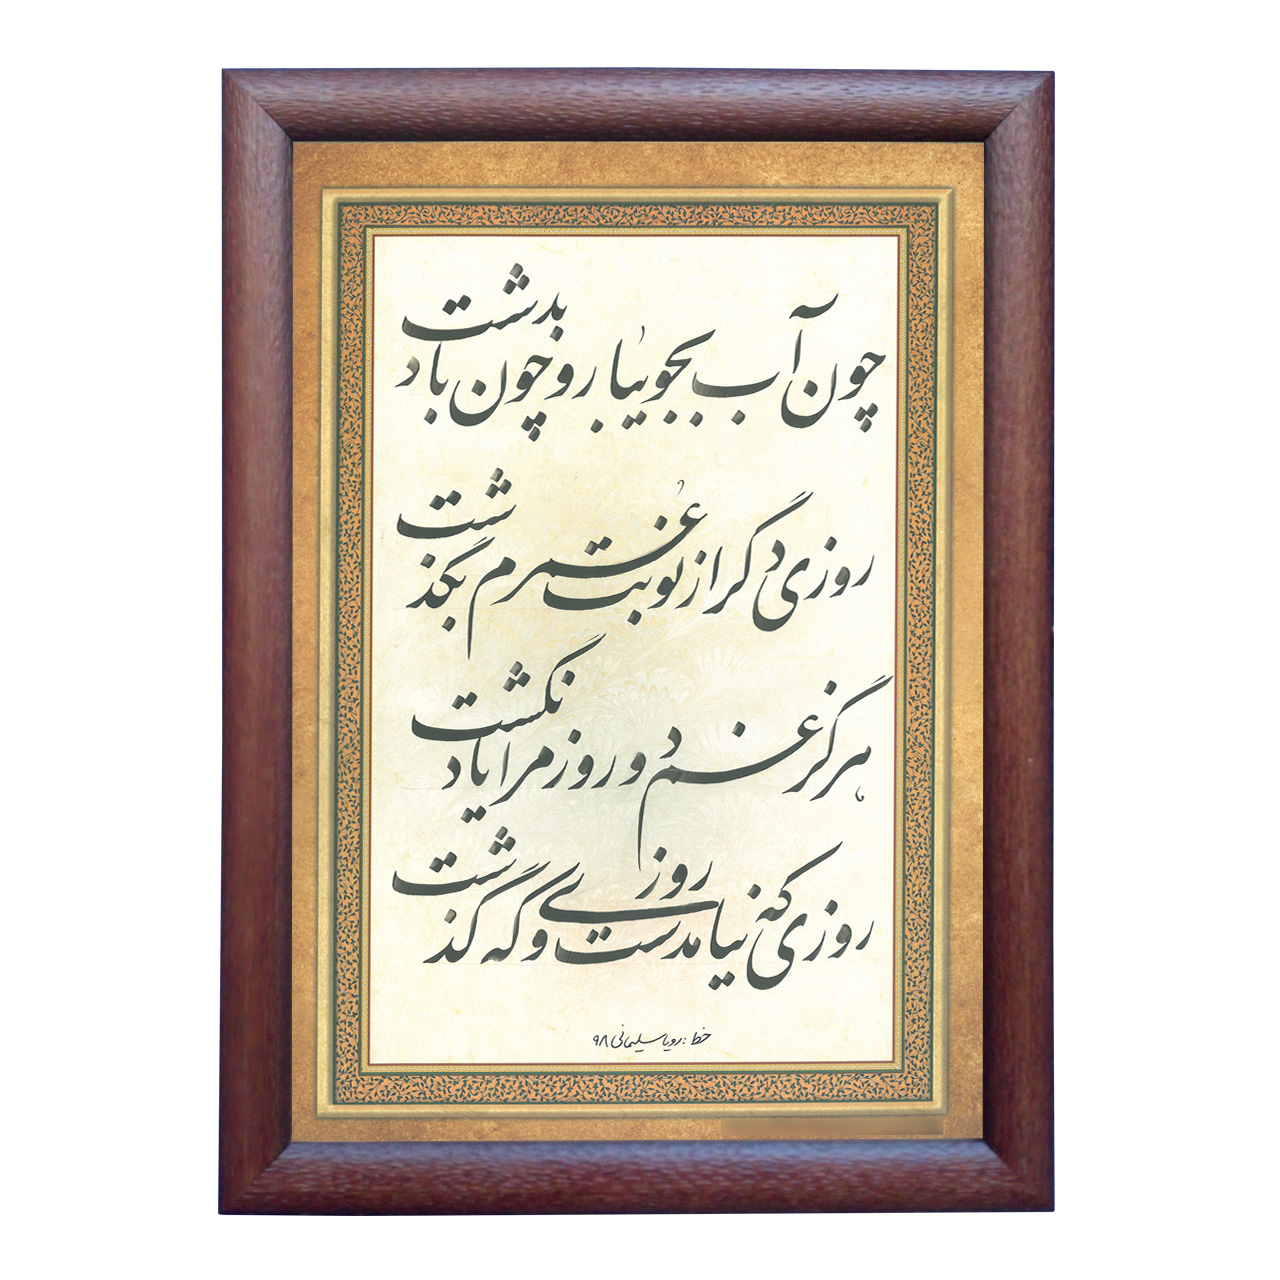 چون آب بجویبار و چون باد بدشت
روزی دگر از نوبت عمرم بگذشت
هرگز غم دو روز مرا یاد نگشت
روزی که نیامدست و روزی که گذشت
خط : رویا سلیمانی ۹۸